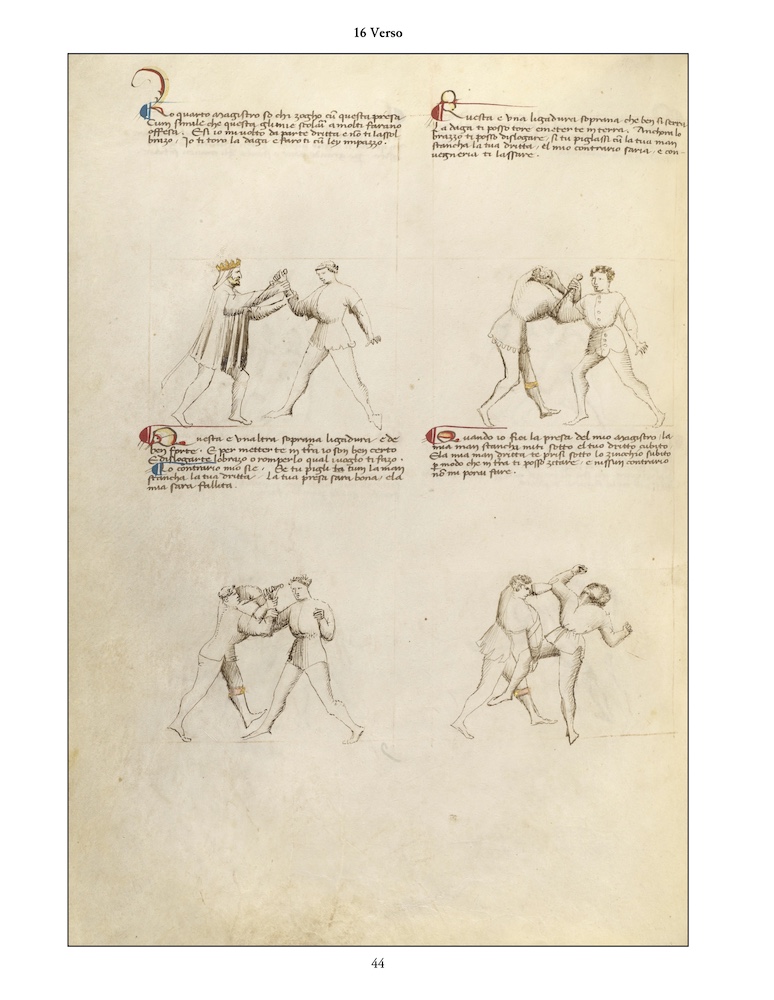 16 Verso
Lo quarto magistro so chi zogho cum questa presa
Cum simile che questa gli mie scolari a molti farano
offesa. E si io mi volto da parte dritta e no ti lasso l
brazo, Io ti toro la daga e faroti cum ley impazo.
Questa e una ligadura soprana che ben si serra
La daga ti posso tore e meterte in terra. Anchora lo
brazzo ti posso dislogare, si tu piglassi cum la tua man
stancha la tua dritta, el mio contrario faria, e con-
vegneria ti lassare.
Questa e una altra soprana ligadura, e de
ben forte. E per metterte in terra io son ben certo
E dislogarte lo brazo o romperlo qual i voglo ti fazo.
Lo contrario mio sie, Se tu pigli cum la man
stancha la tua dritta. La tua presa sara bona, e la
mia sara falleta.
Quando io fici la presa del mio magistro, la
mia man stancha miti sotto el tuo dritto cubito
E la mia man dritta te prisi sotto lo zinochio subito
per modo che in terra ti posso zitare, e nissun contrario
non mi porai fare.
44